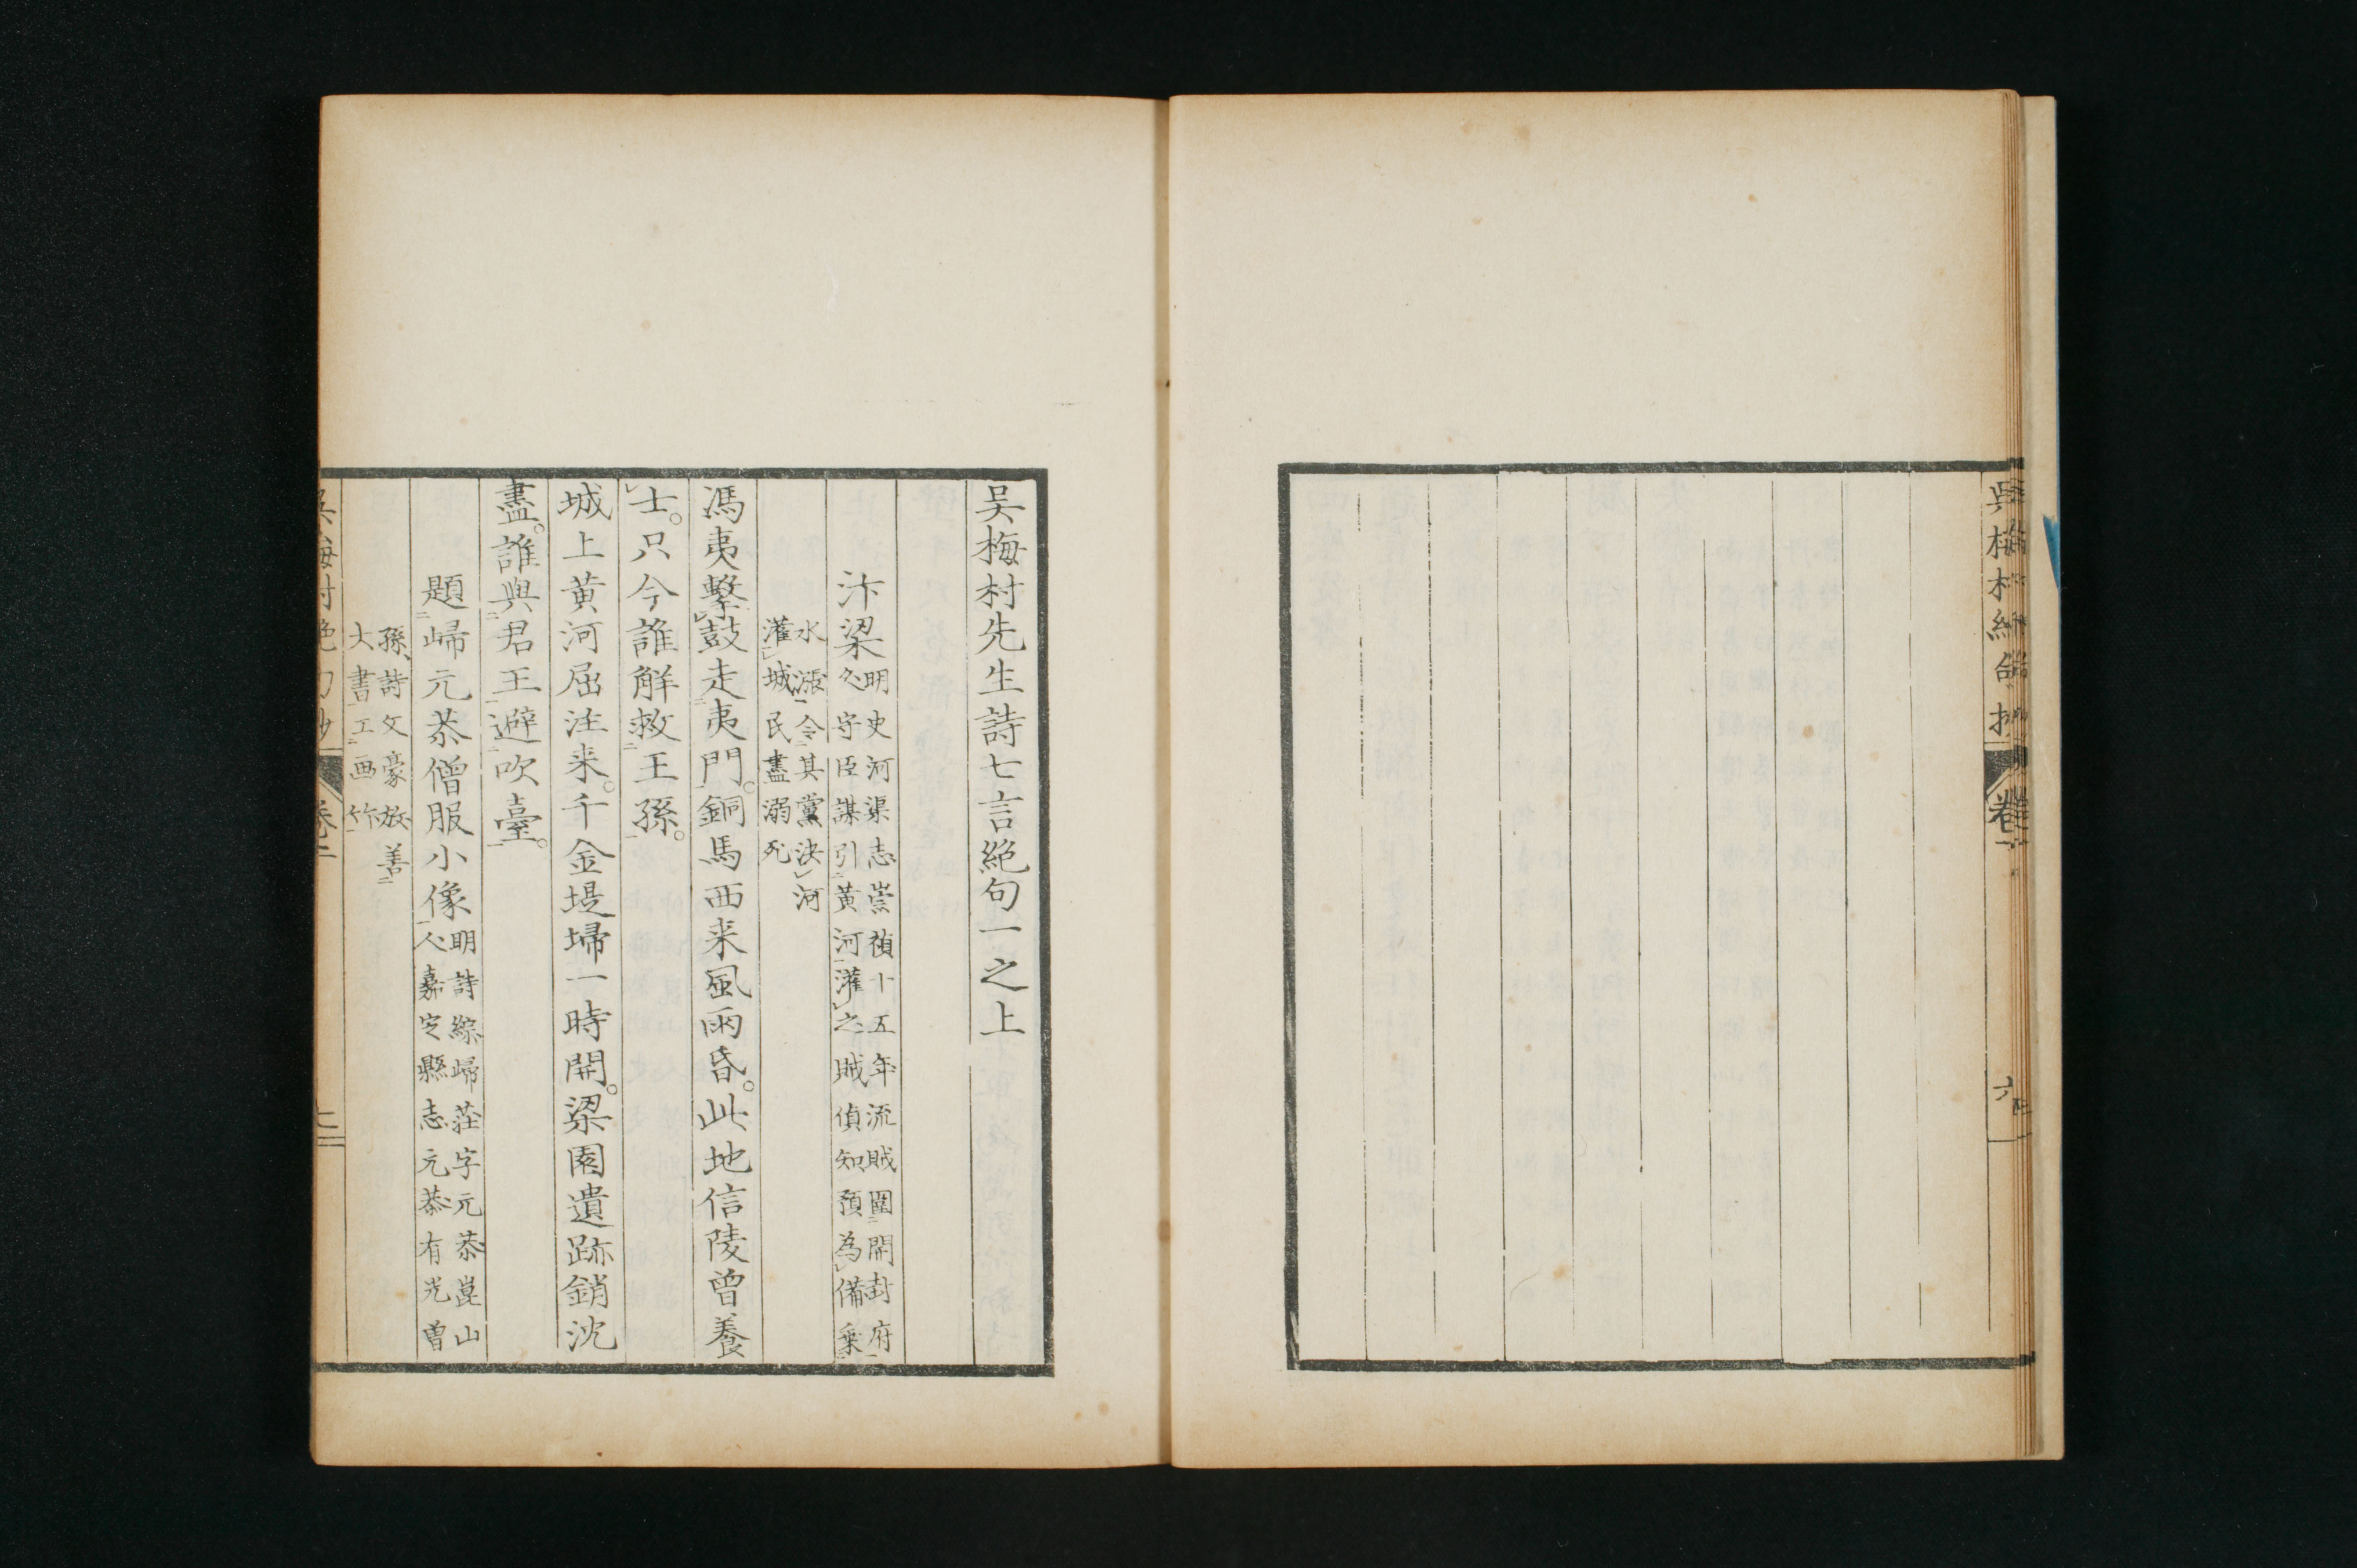 吴梅村先生詩七言絶句一之上
汴梁
明史河渠志崇禎十五年流賊圍開封府
久守臣謀引黄河灌之賊偵知預為備乗
水漲令其黨決河
灌城民盡溺死
馮夷擊鼓走夷門。銅馬西来風雨昏。此地信陵曽養
士。只今誰解救王孫。
城上黄河屈注来。千金堤埽一時開。梁園遺跡銷沈
盡。誰與君王避吹臺。
題歸元恭僧服小像
明詩綜歸莊字元恭崑山
人嘉定縣志元恭有光曽
孫詩文豪放善
大書工画竹